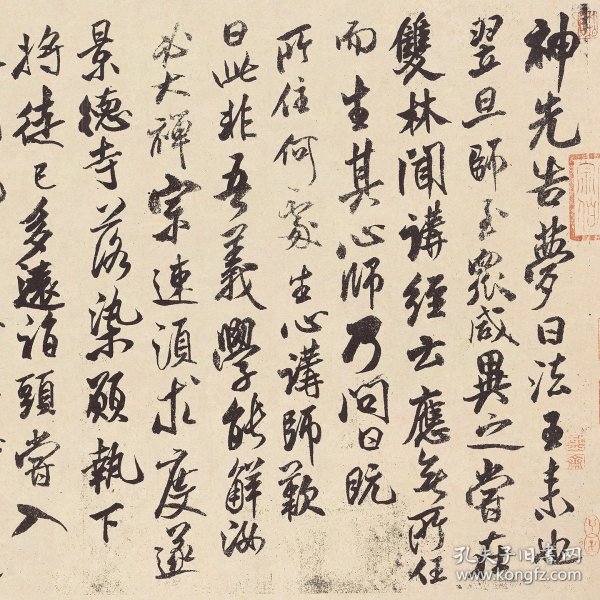 神先告夢曰法王來也
翌旦師至眾咸異之嘗在
雙林聞講經云應無所住
而生其心師乃問曰既
所住何處生心講師歎
曰此非吾義學能解汝
必大禪宗速須求度遂
景德寺落染願執下
將徒已多遠詣頭嘗入
宗伯
孔夫子旧书网
www.kongfz.com